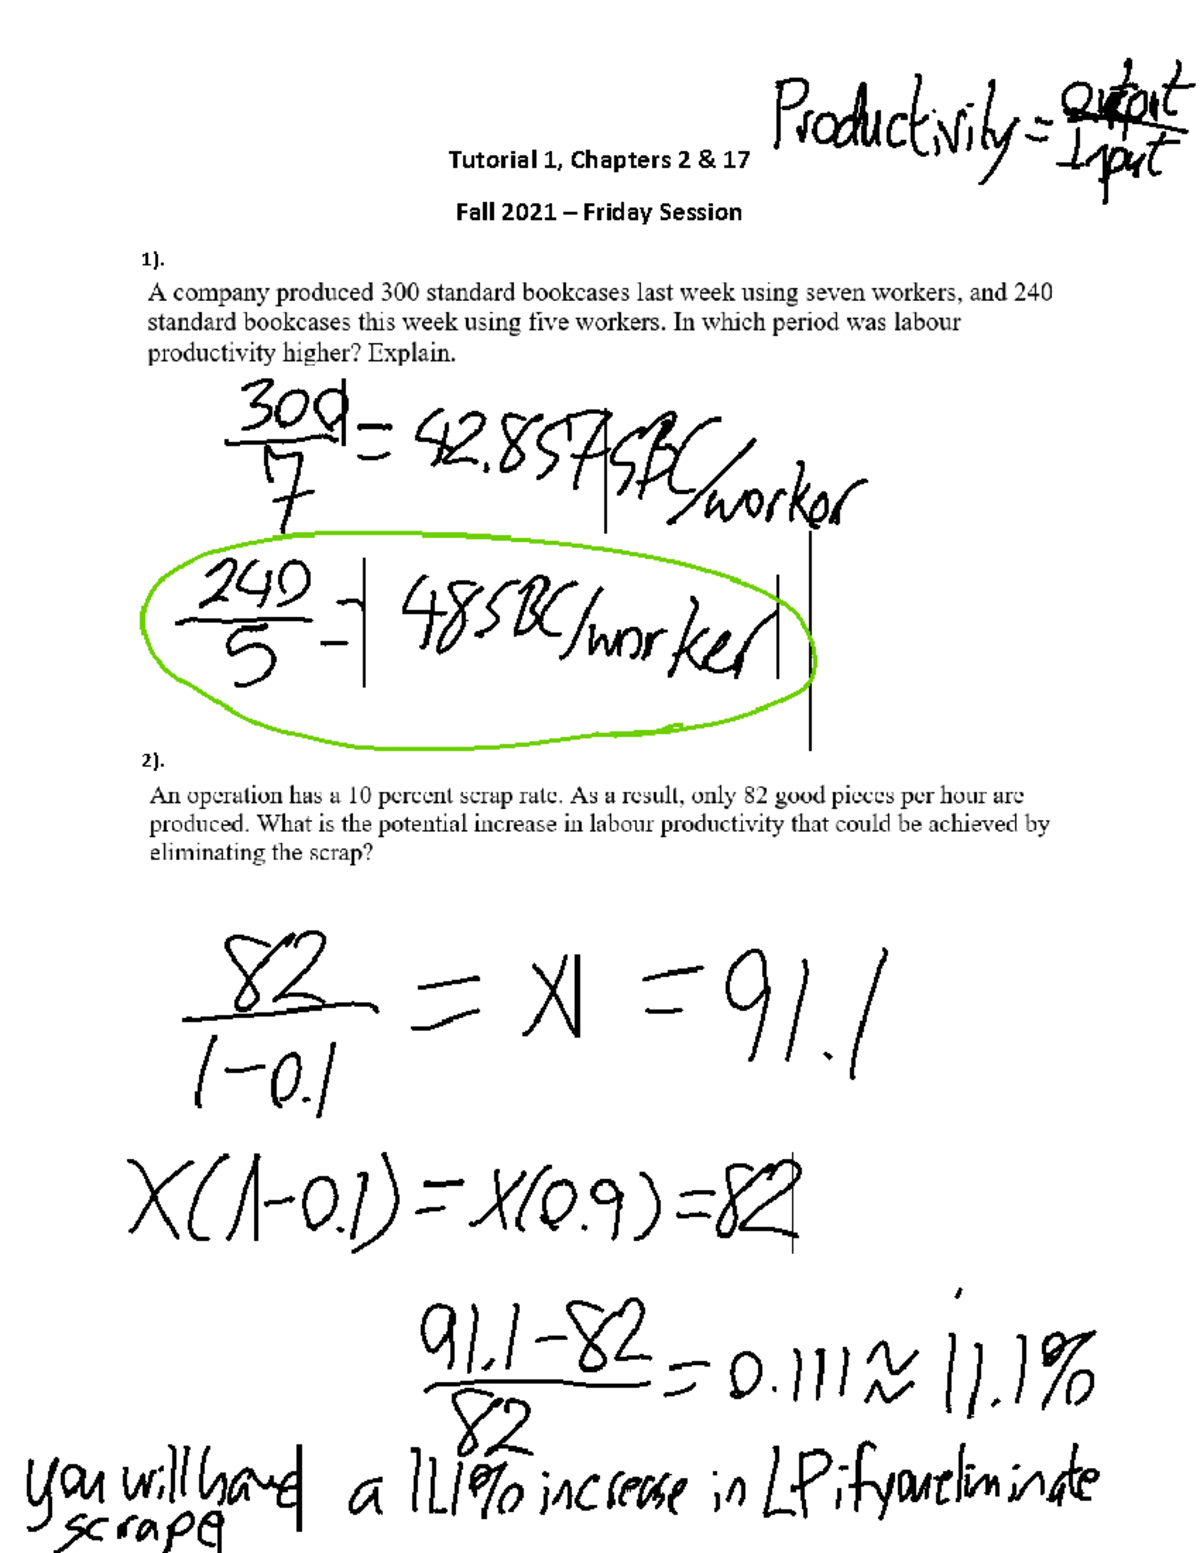 Productivity = output
Input
Tutorial 1, Chapters 2 & 17
Fall 2021 – Friday Session
1).
A company produced 300 standard bookcases last week using seven workers, and 240
standard bookcases this week using five workers. In which period was labour
productivity higher? Explain.
300
7
= 42.857 SBC/worker
240
5
= 48 SBC/worker
2).
An operation has a 10 percent scrap rate. As a result, only 82 good pieces per hour are
produced. What is the potential increase in labour productivity that could be achieved by
eliminating the scrap?
82
1-0.1
= X = 91.1
X(1-0.1) = X(0.9) = 82
91.1-82
82
= 0.111 ≈ 11.1%
you will have a 11.1% increase in LP if you eliminate
scrape